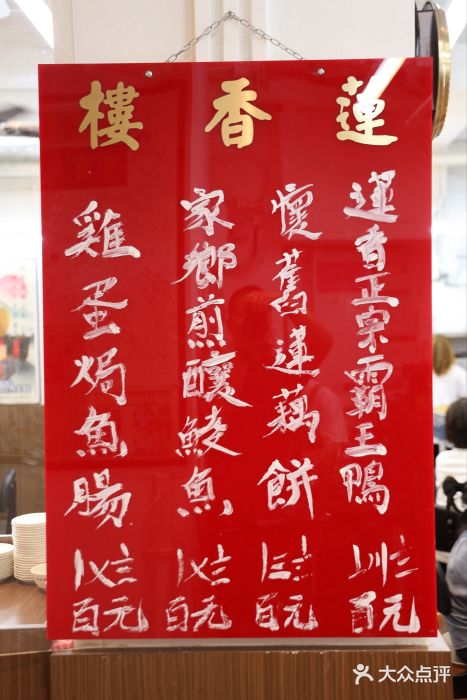 蓮香樓
蓮香正宗霸王鴨
百元
懷舊蓮藕餅
百元
家鄉煎釀鯪魚
百元
雞蛋焗魚腸
百元
大众点评